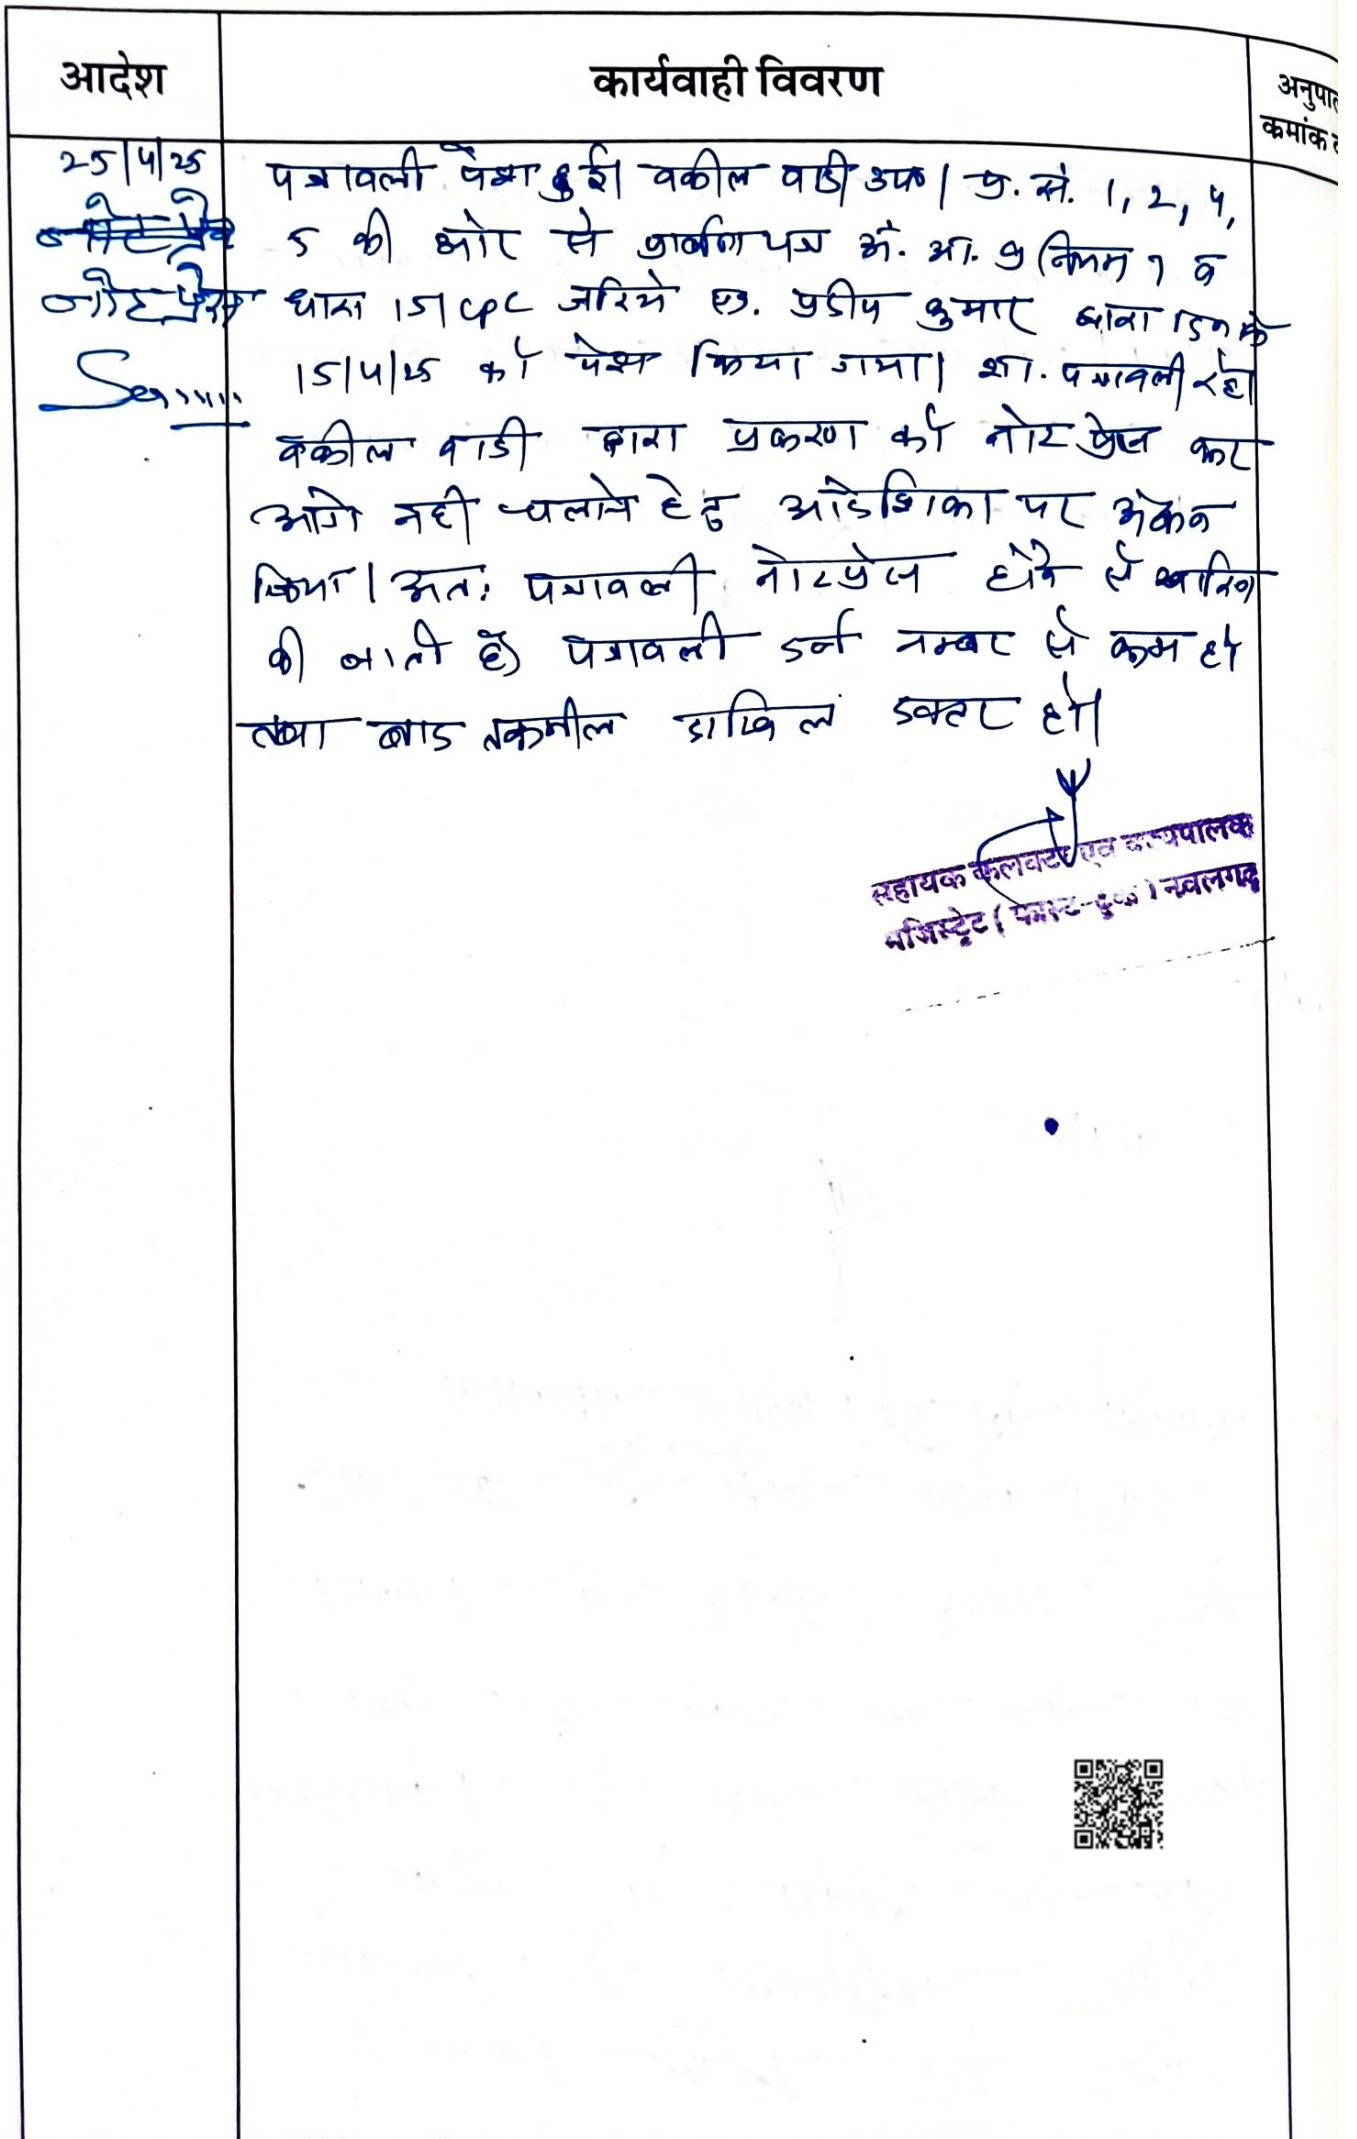 आदेश
कार्यवाही विवरण
अनुपाल
कमांक
25/4/25
पत्रावली पेश हुई। वकील वादी उप०। प्र. सं. 1, 2, 4,
5 की ओर से प्रार्थना पत्र अं. आ. 9 नियम 7 व
नोट प्रेस
धारा 151 CPC जरिये एड. प्रदीप कुमार द्वारा दिनांक
15/4/25 को पेश किया गया। शा. पत्रावली रहे।
वकील वादी द्वारा प्रकरण को नोट प्रेस कर
आगे नहीं चलाने हेतु आदेशिका पर अंकन
किया। अतः पत्रावली नोटप्रेस होने से खारिज
की जाती है। पत्रावली दर्ज नम्बर से कम हो
तथा बाद तकमील दाखिल दफ्तर हो।
सहायक कलक्टर एवं कार्यपालक
मजिस्ट्रेट (फास्ट-ट्रेक) नवलगढ़